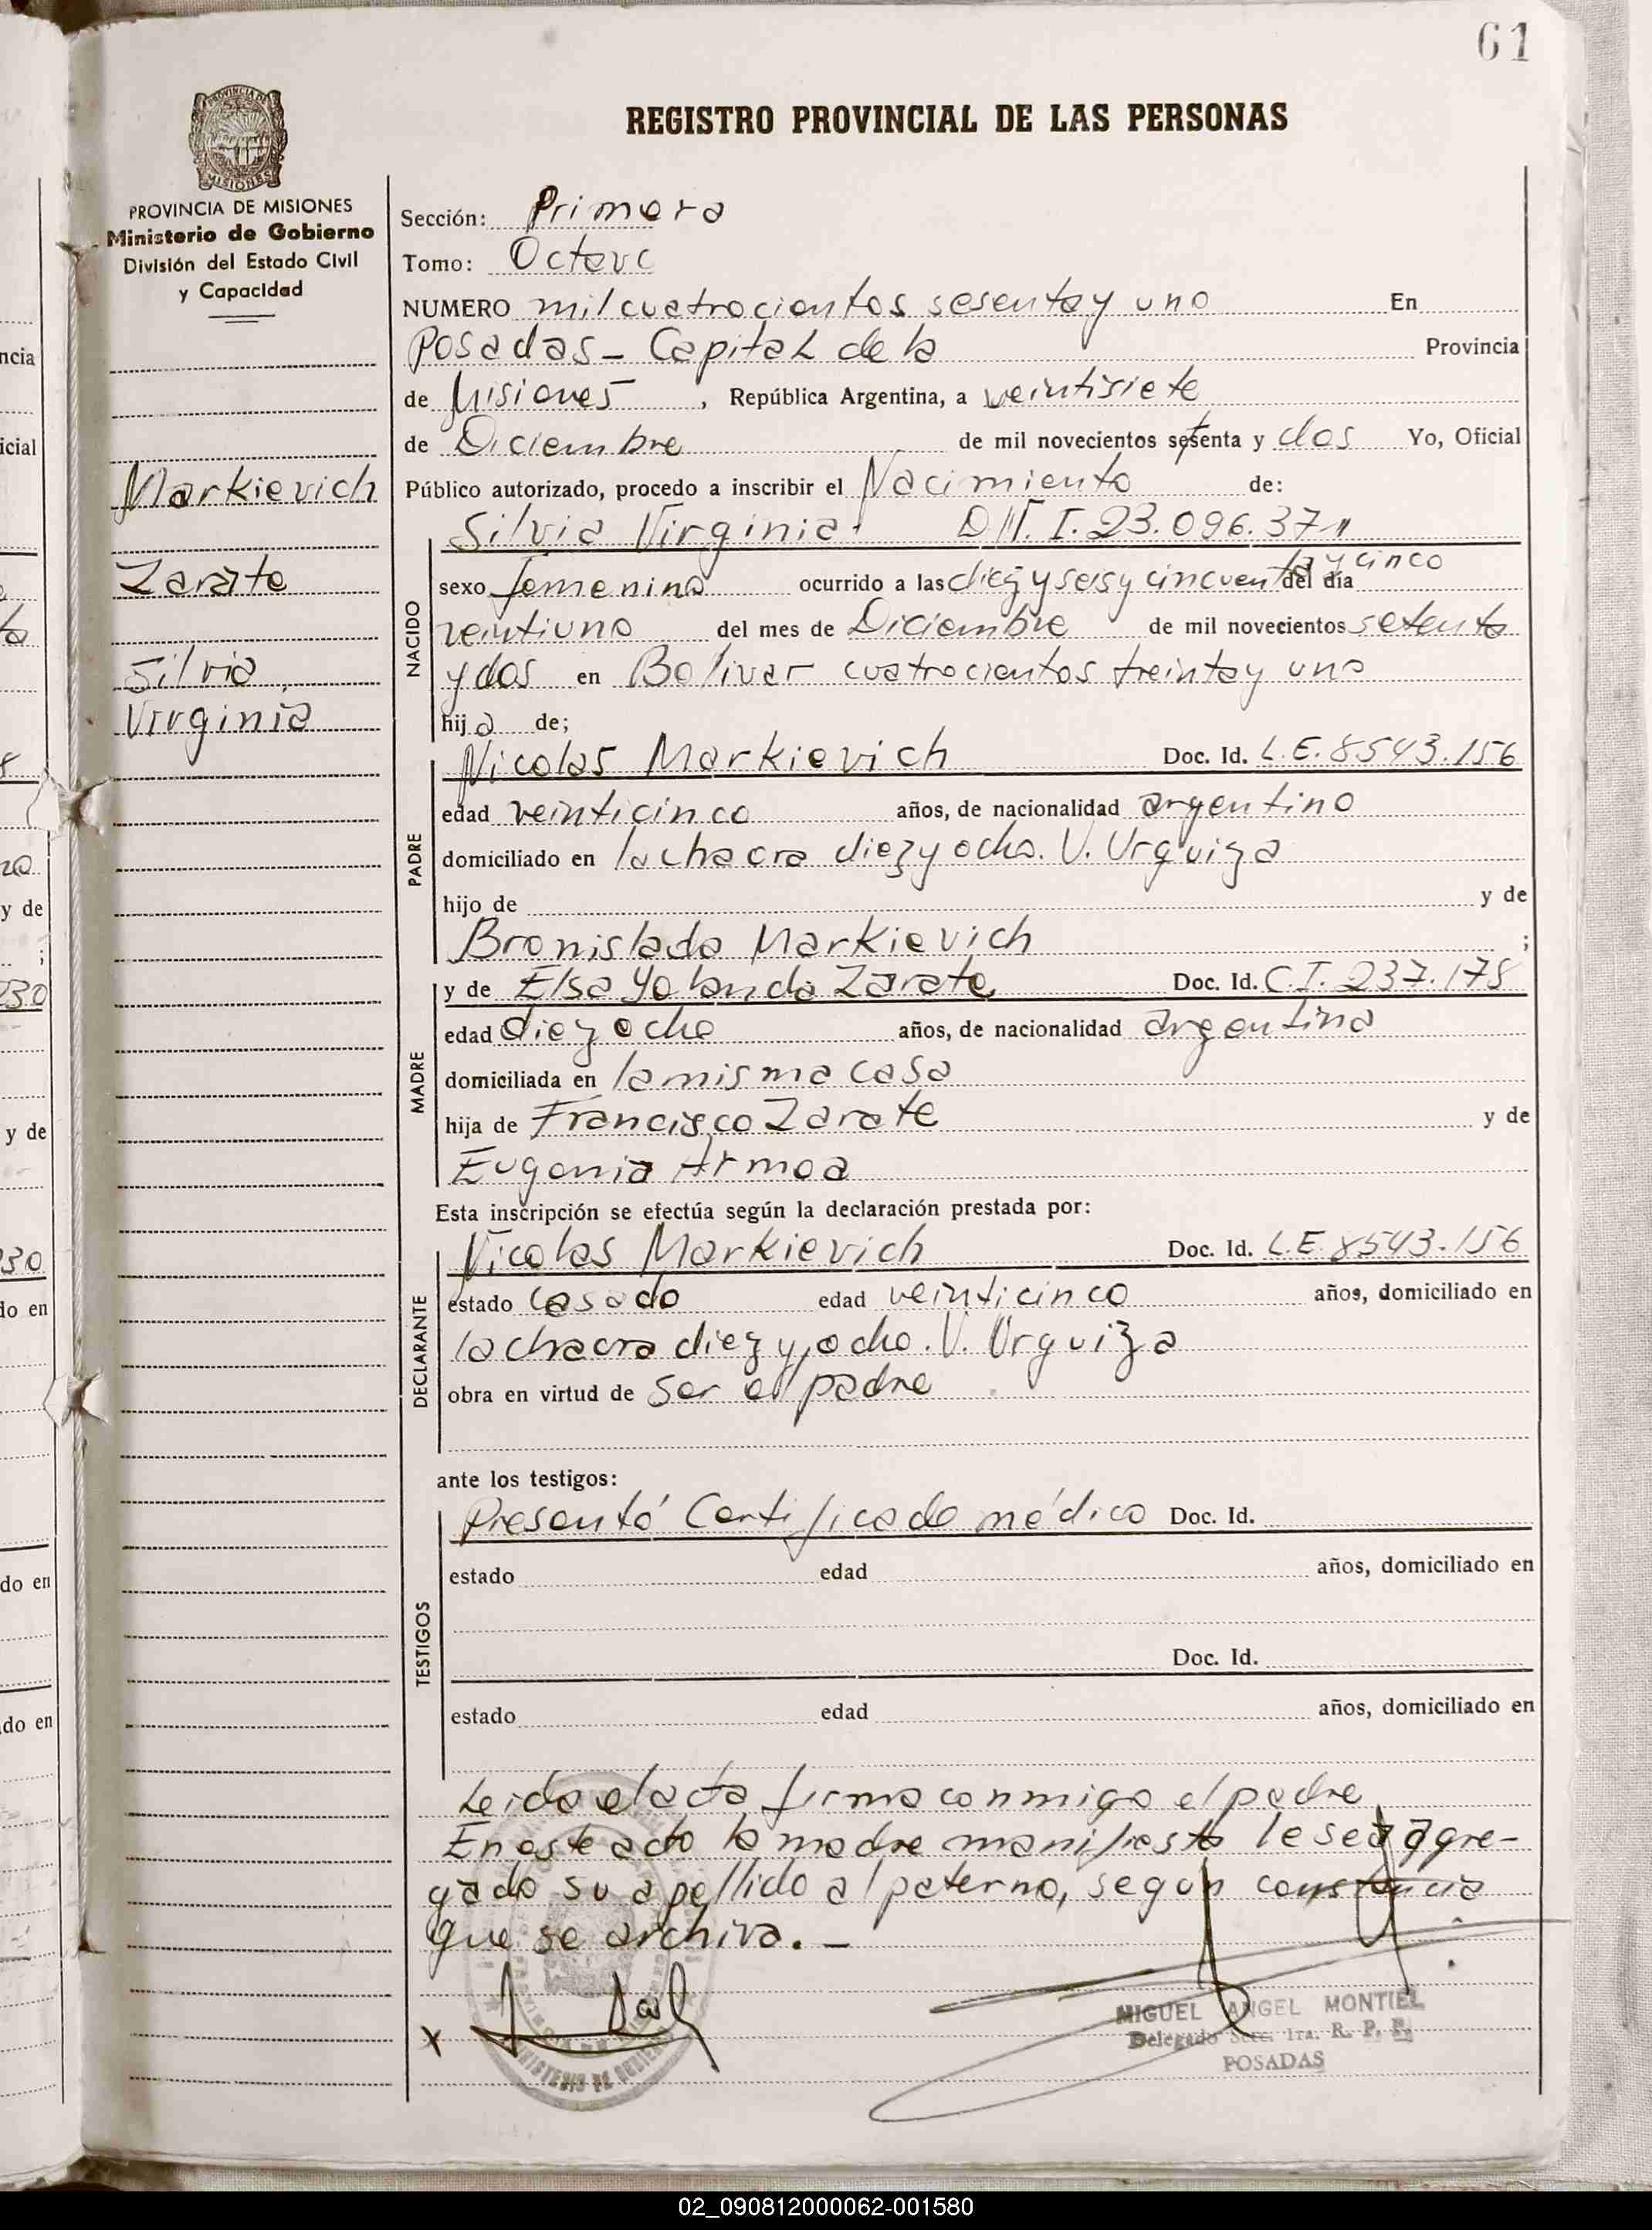 61
REGISTRO PROVINCIAL DE LAS PERSONAS
PROVINCIA DE MISIONES
Ministerio de Gobierno
División del Estado Civil
y Capacidad
Markievich
Zarate
Silvia
Virginia
Sección: Primera
Tomo: Octavo
NUMERO mil cuatrocientos sesenta y uno En
Posadas - Capital de la Provincia
de Misiones, República Argentina, a veintisiete
de Diciembre de mil novecientos setenta y dos Yo, Oficial
Público autorizado, procedo a inscribir el Nacimiento de:
Silvia Virginia. D.N.I. 23.096.371
NACIDO
sexo femenino ocurrido a las diez y seis y cincuenta y cinco del día
veintiuno del mes de Diciembre de mil novecientos setenta
y dos en Bolivar cuatrocientos treinta y uno
hija de;
PADRE
Nicolas Markievich Doc. Id. L.E. 8543.156
edad veinticinco años, de nacionalidad argentino
domiciliado en la chacra diez y ocho. V. Urquiza
hijo de y de
Bronislada Markievich ;
MADRE
y de Elsa Yolanda Zarate Doc. Id. C.I. 237.178
edad diez ocho años, de nacionalidad argentina
domiciliada en la misma casa
hija de Francisco Zarate y de
Eugenia Armoa
Esta inscripción se efectúa según la declaración prestada por:
DECLARANTE
Nicolas Markievich Doc. Id. L.E. 8543.156
estado casado edad veinticinco años, domiciliado en
la chacra diez y ocho. V. Urquiza
obra en virtud de ser el padre
ante los testigos:
TESTIGOS
Presentó Certificado médico Doc. Id.
estado edad años, domiciliado en
Doc. Id.
estado edad años, domiciliado en
Leida el acta firma conmigo el padre
En este acto la madre manifiesta le sea agre-
gado su apellido al paterno, segun constancia
que se archiva. -
x
MIGUEL ANGEL MONTIEL
Delegado Secc. 1ra. R. P. P.
POSADAS
02_090812000062-001580